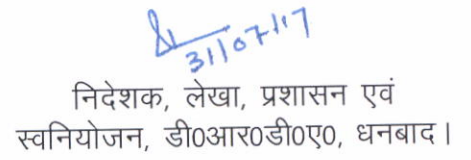 31/07/17
निदेशक, लेखा, प्रशासन एवं
स्वनियोजन, डी0आर0डी0ए0, धनबाद।